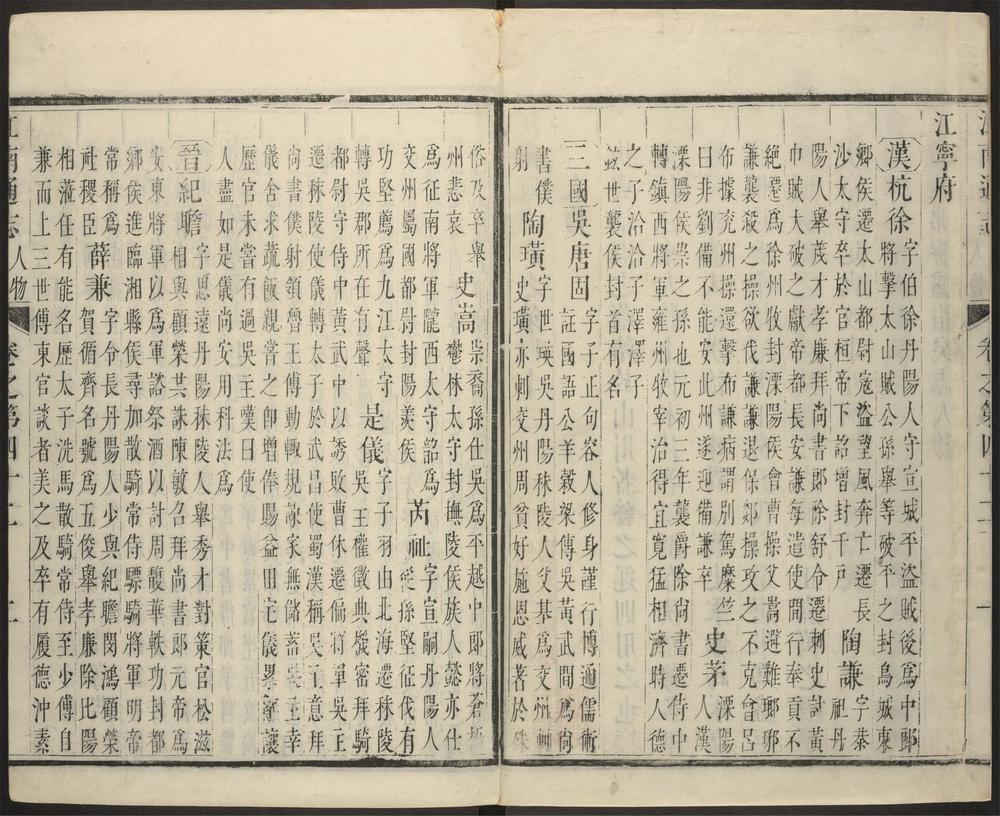 江南通志 卷之第四十二 一
江寧府
漢杭徐 字伯徐丹陽人守宣城平盜賊後爲中郎
將擊太山賊公孫舉等破平之封烏城東
鄉侯遷太山都尉寇盜望風奔亡遷長
沙太守卒於官桓帝下詔增封千戸 陶謙 字恭
祖丹
陽人舉茂才孝廉拜尚書郎除舒令遷刺史討黃
巾賊大破之獻帝都長安謙每遣使間行奉貢不
絕遷爲徐州牧封溧陽侯會曹操父嵩避難瑯琊
謙襲殺之操欲伐謙謙退保郯操攻之不克會呂
布據兗州操還擊布謙病謂別駕糜竺
曰非劉備不能安此州遂迎備謙卒 史茅 溧陽
人漢
溧陽侯崇之孫也元初三年襲爵除尚書遷侍中
轉鎮西將軍雍州牧宰治得宜寬猛相濟時人德
之子洽洽子澤澤子
茲世襲侯封皆有名
三國吳唐固 字子正句容人修身謹行博通儒術
註國語公羊穀梁傳吳黃武間爲尚
書僕
射 陶璜 字世瑛吳丹陽秣陵人父基爲交州刺
史璜亦刺交州周貧好施恩威著於殊
俗及卒舉
州悲哀 史嵩 崇裔孫仕吳爲平越中郎將蒼梧
鬱林太守封撫陵侯族人懿亦仕
爲征南將軍隴西太守詔爲
交州屬國都尉封陽羨侯 芮祉 字宣嗣丹陽人
從孫堅征伐有
功堅薦爲九江太守
轉吳郡所在有聲 是儀 字子羽由北海遷秣陵
吳王權徵典機密拜騎
都尉守侍中黃武中以誘敗曹休遷偏將軍吳王
遷秣陵使儀輔太子於武昌使蜀漢稱吳王意拜
尚書僕射領魯王傅動輒規諫家無儲蓄吳主幸
儀舍求蔬飯親嘗之卽增俸賜益田宅儀累辭讓
歷官未嘗有過吳主嘆曰使
人盡如是儀尚安用科法爲
晉紀瞻 字思遠丹陽秣陵人舉秀才對策官松滋
相與顧榮共誅陳敏召拜尚書郎元帝爲
安東將軍以爲軍諮祭酒以討周馥華軼功封都
鄉侯進臨湘縣侯尋加散騎常侍驃騎將軍明帝
常稱爲
社稷臣 薛兼 字令長丹陽人少與紀瞻閔鴻顧榮
賀循齊名號爲五俊舉孝廉除比陽
相蒞任有能名歷太子洗馬散騎常侍至少傅自
兼而上三世傅東宮談者美之及卒有履德沖素
江南通志 人物 卷之第四十二 二